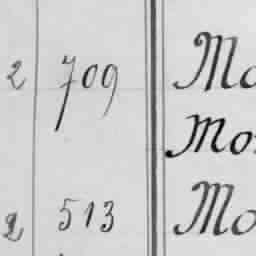 2 709 Mo
Mo
2 513 Mo